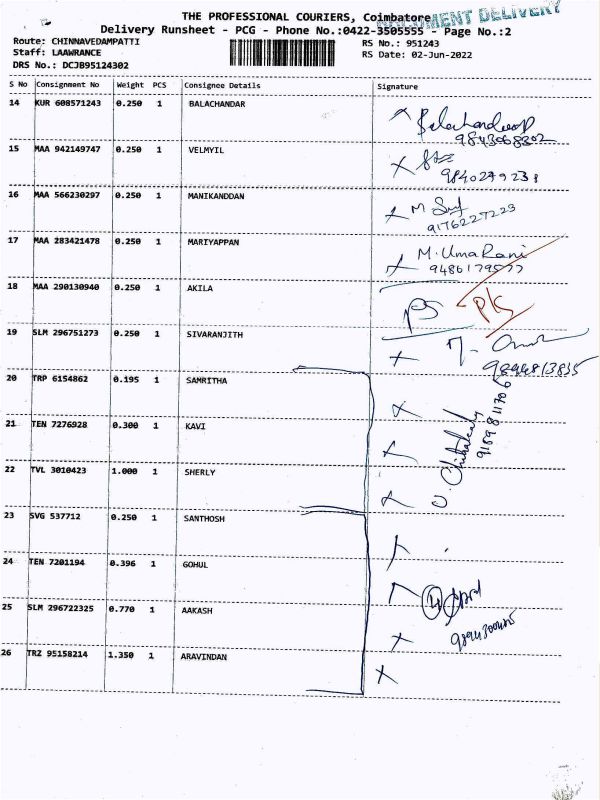 THE PROFESSIONAL COURIERS, Coimbatore
DELIVERY
Delivery Runsheet - PCG - Phone No.:0422-3505555 - Page No.:2
Route: CHINNAVEDAMPATTI RS No.: 951243
Staff: LAAWRANCE RS Date: 02-Jun-2022
DRS No.: DCJB95124302
S No Consignment No Weight PCS Consignee Details Signature
14 KUR 608571243 0.250 1 BALACHANDAR
9843068302
15 MAA 942149747 0.250 1 VELMYIL
9840279238
16 MAA 566230297 0.250 1 MANIKANDDAN
9176227223
17 MAA 283421478 0.250 1 MARIYAPPAN M. Uma Rani
18 MAA 290130940 0.250 1 AKILA
19 SLM 296751273 0.250 1 SIVARANJITH
9894813835
20 TRP 6154862 0.195 1 SAMRITHA
21 TEN 7276928 0.300 1 KAVI
22 TVL 3010423 1.000 1 SHERLY
23 SVG 537712 0.250 1 SANTHOSH
24 TEN 7201194 0.396 1 GOHUL
25 SLM 296722325 0.770 1 AAKASH
26 TRZ 95158214 1.350 1 ARAVINDAN